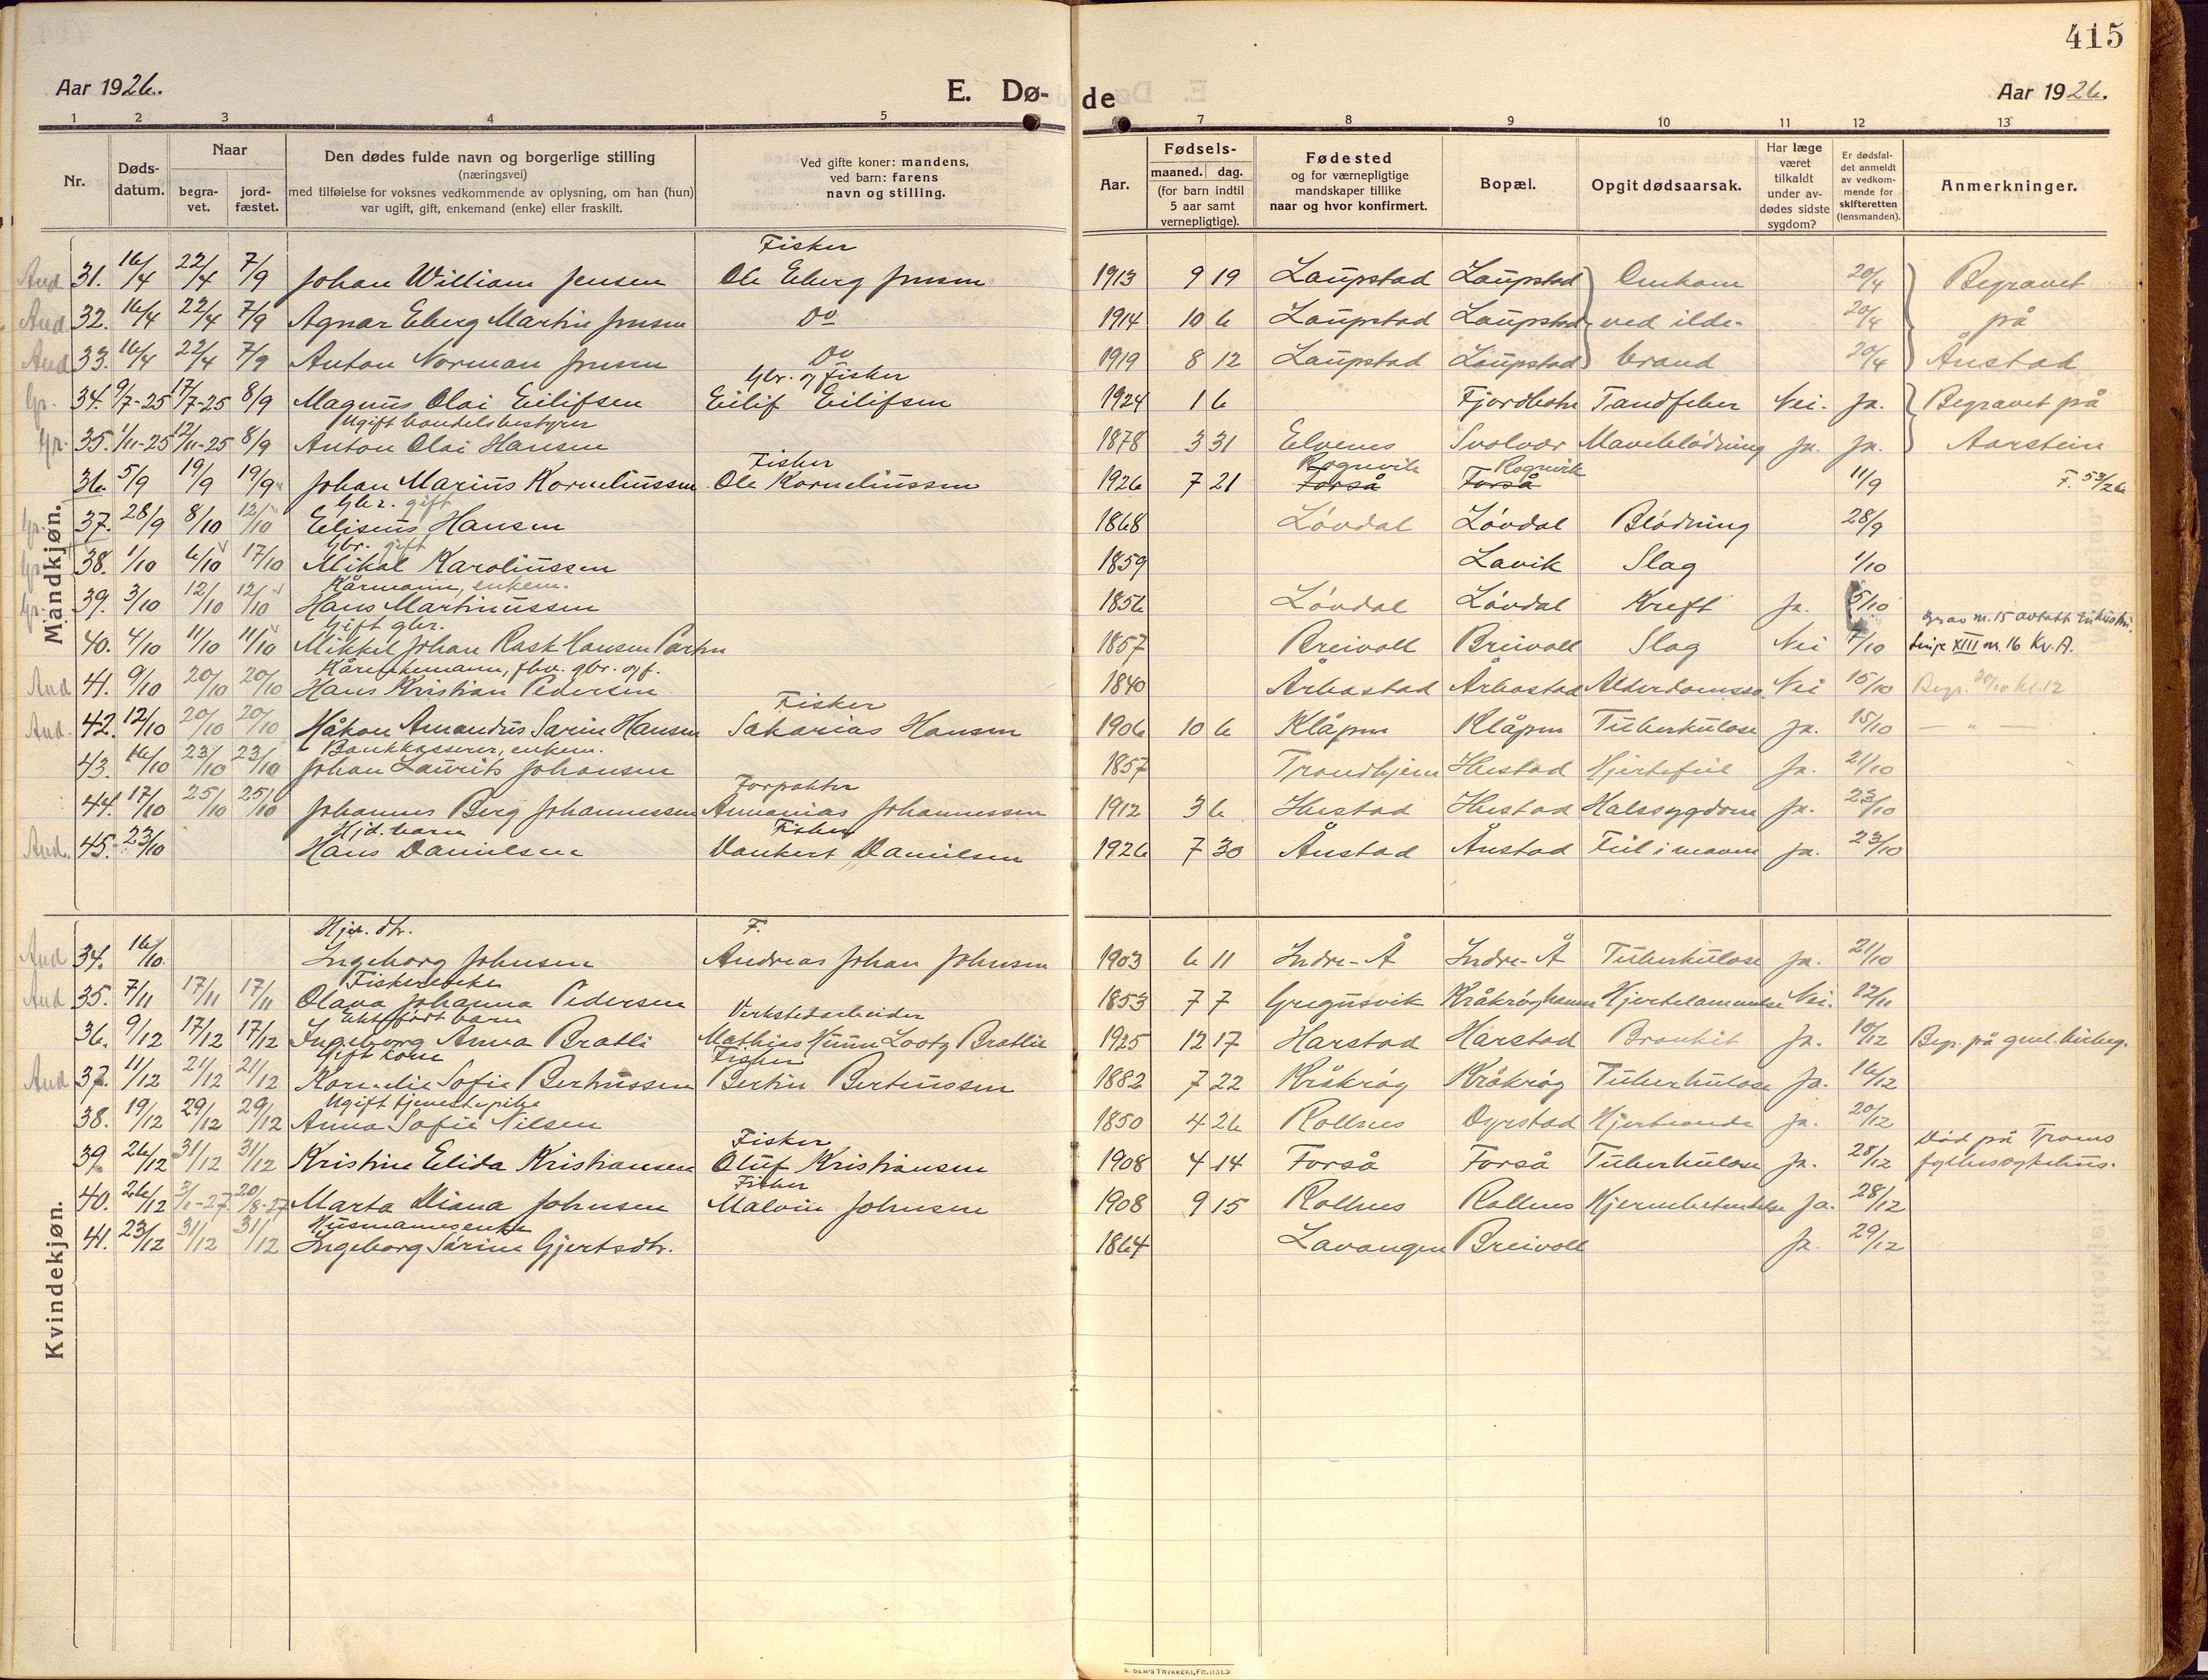 415
Aar 1926.
E. Dø-
de
Aar 1926.
1 2 3 4 5
7 8 9 10 11 12 13
Nr.
Døds-
datum.
Naar
begra-
vet.
jord-
fæstet.
Den dødes fulde navn og borgerlige stilling
(næringsvei)
med tilføielse for voksnes vedkommende av oplysning, om han (hun)
var ugift, gift, enkemand (enke) eller fraskilt.
Ved gifte koner: mandens,
ved barn: farens
navn og stilling.
Aar.
Fødsels-
maaned. dag.
(for barn indtil
5 aar samt
vernepligtige).
Fødested
og for værnepligtige
mandskaper tillike
naar og hvor konfirmert.
Bopæl.
Opgit dødsaarsak.
Har læge
været
tilkaldt
under av-
dødes sidste
sygdom?
Er dødsfal-
det anmeldt
av vedkom-
mende for
skifteretten
(lensmanden).
Anmerkninger.
Mandkjøn.
Fisker
And 31. 16/4 22/4 7/9 Johan William Jensen Ole Eberg Jensen 1913 9 19 Laupstad Laupstad Omkom 20/4 Begravet
And. 32. 16/4 22/4 7/9 Agnar Eberg Martin Jensen Do 1914 10 6 Laupstad Laupstad ved ilde- 20/4 på
And 33. 16/4 22/4 7/9 Anton Norman Jensen Do 1919 8 12 Laupstad Laupstad brand 20/4 Ånstad
Gbr. og Fisker
Gr. 34. 9/7-25 17/7-25 8/9 Magnus Olai Eilifsen Eilif Eilifsen 1924 1 6 Fjordbotn Tandfeber Nei. Ja. Begravet på
Ugift handelsbestyrer
Gr. 35. 1/11-25 12/11-25 8/9 Anton Olai Hansen 1878 3 31 Elvenes Svolvær Maveblødning Ja. Ja. Aarstein
Fisker Rognvik Rognvik
36. 5/9 19/9 19/9 Johan Marius Korneliussen Ole Korneliussen 1926 7 21 Forså Forså 11/9 F. 53/26
Gbr. gift
Gr. 37. 28/9 8/10 12/10 Eliseus Hansen 1868 Løvdal Løvdal Blødning 28/9
Gbr. gift
Gr. 38. 1/10 6/10 17/10 Mikal Karoliussen 1859 Lavik Slag 1/10
Kårmann, enkem.
Gr. 39. 3/10 12/10 12/10 Hans Martinussen 1856 Løvdal Løvdal Kreft Ja. 5/10
Gift gbr. Grav nr. 15
40. 4/10 11/10 11/10 Mikkel Johan Rask Hansen 1857 Breivoll Breivoll Slag Nei 7/10 linje XIII nr. 16 Kv. A.
Kårenkemann, fhv. gbr. og f.
And 41. 9/10 20/10 20/10 Hans Kristian Pedersen 1840 Årbostad Årbostad Nei 15/10 Begr. 20/10 kl. 12
Fisker
And. 42. 12/10 20/10 20/10 Håkon Amandus Sarin Hansen Sakarias Hansen 1906 10 6 Klåpen Klåpen Tuberkulose Ja. 15/10 — "
Bankkasserer, enkem.
43. 16/10 23/10 23/10 Johan Laurits Johansen 1857 Trondhjem Ibestad Hjertefeil Ja. 21/10
Forpakter
44. 17/10 25/10 25/10 Johannes Berg Johannessen Annanias Johannessen 1912 3 6 Ibestad Ibestad Halssygdom Ja. 23/10
Hjd. barn Fisker
And. 45. 23/10 Hans Danielsen Dankert Danielsen 1926 7 30 Ånstad Ånstad Feil i maven Ja. 23/10
Kvindekjøn.
Hjv. dtr. F.
And 34. 16/10 Ingeborg Johnsen Andreas Johan Johnsen 1903 6 11 Indre-Å Indre-Å Tuberkulose Ja. 21/10
Fiskerenke
And 35. 7/11 17/11 17/11 Olava Johanna Pedersen 1853 7 7 Gregusvik Kråkrøghamn Hjertelammelse Nei. 12/11
Ektefødt barn Verkstedarbeider
36. 9/12 17/12 17/12 Ingeborg Anna Bratli Mathias Lootz Bratlie 1925 12 17 Harstad Harstad Bronkit Ja. 10/12 Begr. på gml. kirkeg.
Gift kone Fisker
And 37. 11/12 21/12 21/12 Kornelie Sofie Bertinussen Bertin Bertinussen 1882 7 22 Kråkrøg Kråkrøg Tuberkulose Ja. 16/12
Ugift tjenestepike
38. 19/12 29/12 29/12 Anna Sofie Nilsen 1850 4 26 Rollnes Dyrstad Hjerteonde Ja. 20/12
Fisker Død på Troms
39. 26/12 31/12 31/12 Kristine Elida Kristiansen Oluf Kristiansen 1908 4 14 Forså Forså Tuberkulose Ja. 28/12 fylkessykehus.
Fisker
40. 26/12 3/1-27 20/8-27 Marta Diana Johnsen Malvin Johnsen 1908 9 15 Rollnes Rollnes Hjernebetendelse Ja. 28/12
Husmannsenke
41. 23/12 31/12 31/12 Ingeborg Sørine Gjertsdtr. 1864 Lavangen Breivoll Ja. 29/12